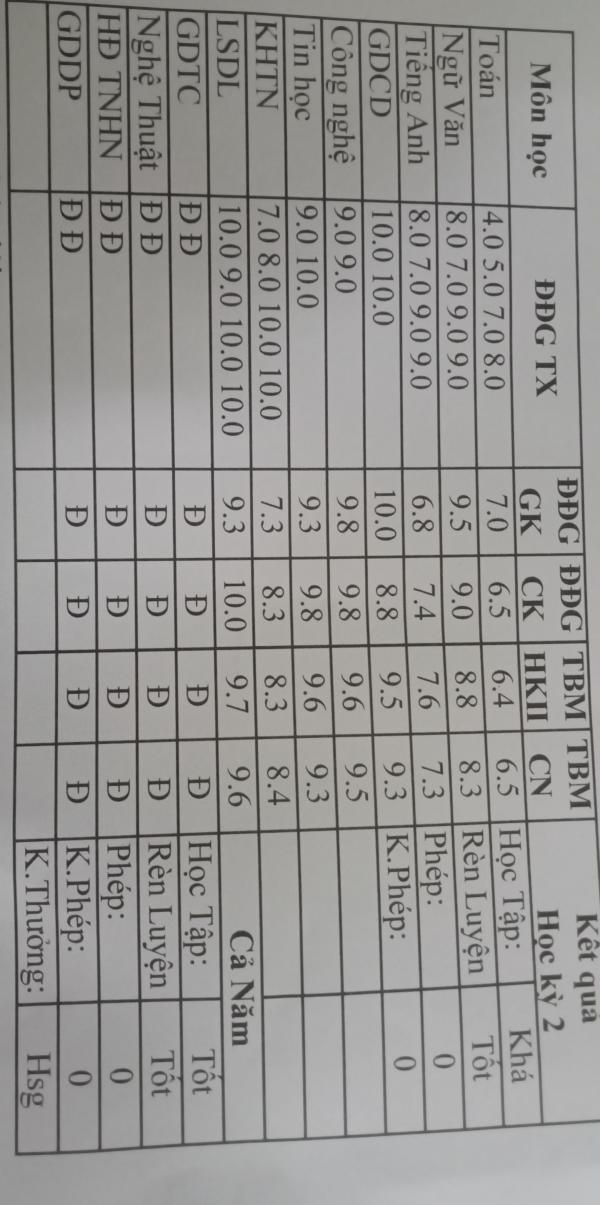 Môn học ĐĐG TX ĐĐG GK ĐĐG CK TBM HKII TBM CN Kết quả Học kỳ 2
Toán 4.0 5.0 7.0 8.0 7.0 6.5 6.4 6.5 Học Tập: Khá
Ngữ Văn 8.0 7.0 9.0 9.0 9.5 9.0 8.8 8.3 Rèn Luyện Tốt
Tiếng Anh 8.0 7.0 9.0 9.0 6.8 7.4 7.6 7.3 Phép: 0
GDCD 10.0 10.0 10.0 8.8 9.5 9.3 K.Phép: 0
Công nghệ 9.0 9.0 9.8 9.8 9.6 9.5
Tin học 9.0 10.0 9.3 9.8 9.6 9.3
KHTN 7.0 8.0 10.0 10.0 7.3 8.3 8.3 8.4
LSDL 10.0 9.0 10.0 10.0 9.3 10.0 9.7 9.6 Cả Năm
GDTC Đ Đ Đ Đ Đ Đ Học Tập: Tốt
Nghệ Thuật Đ Đ Đ Đ Đ Đ Rèn Luyện Tốt
HĐ TNHN Đ Đ Đ Đ Đ Đ Phép: 0
GDDP Đ Đ Đ Đ Đ Đ K.Phép: 0
K.Thưởng: Hsg